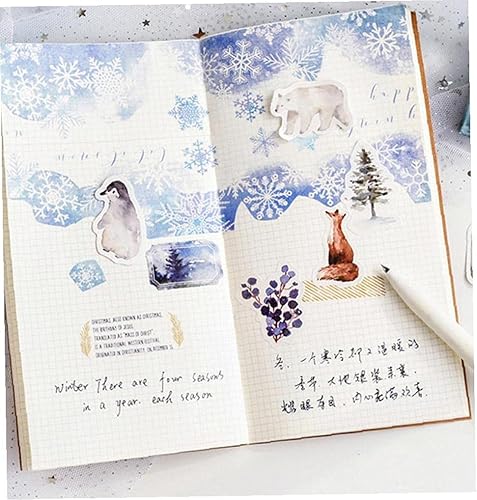 happy
CHRISTMAS, ALSO KNOWN AS CHRISTMAS,
THE BIRTHDAY OF JESUS,
TRANSLATED AS "MASS OF CHRIST",
IS A TRADITIONAL WESTERN FESTIVAL
ORIGINATED IN CHRISTIANITY. ON DECEMBER 25.
Winter There are four seasons
in a year. each season
冬,一个寒冷却又温暖的
季节,大地银装素裹,
耀眼夺目,内心充满欢喜.